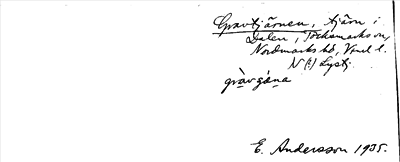 Gravtjärnen, tjärn i
Dalen, Töcksmarks sn,
Nordmarks hd, Vrml l.
N (?) Lystj.
gràvgǽna
E. Andersson 1935.